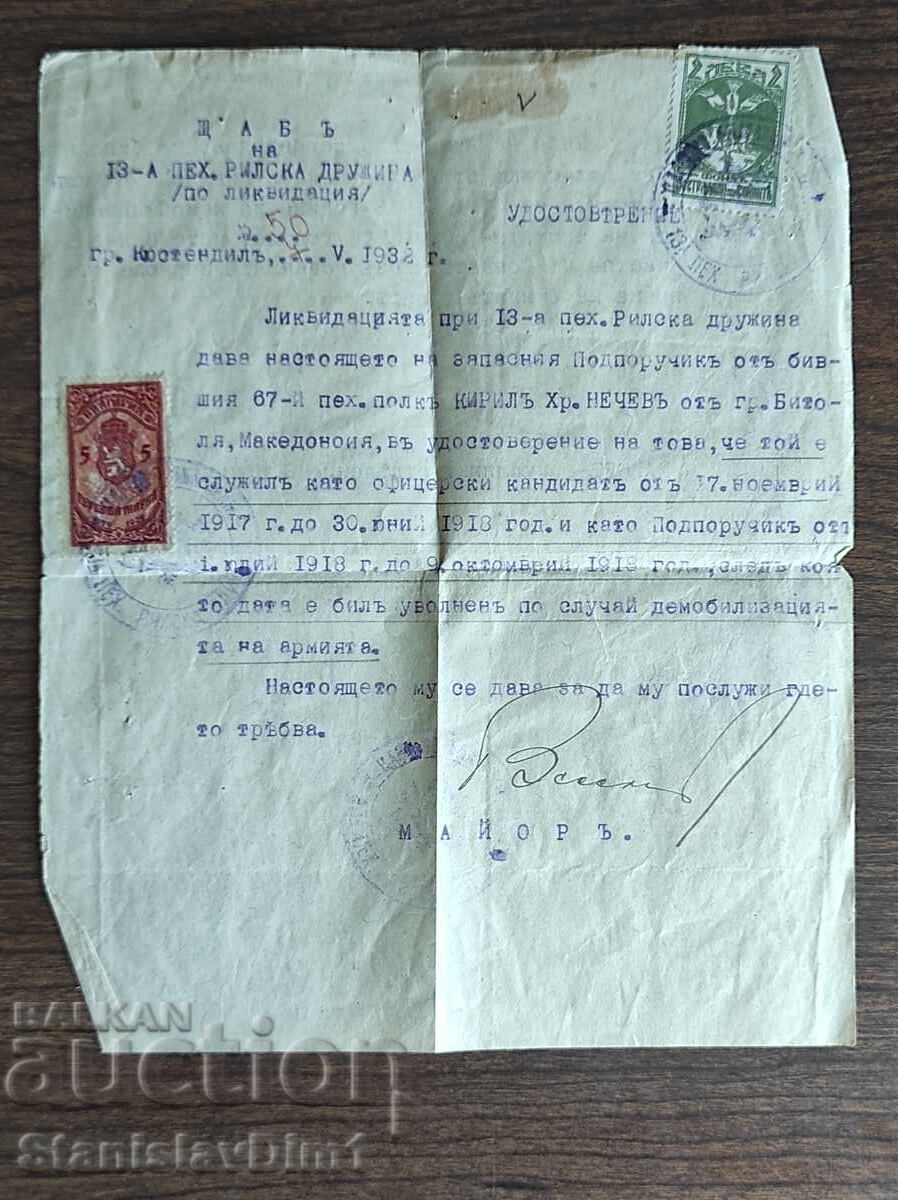 ЩАБЪ
на
13-А ПЕХ. РИЛСКА ДРУЖИНА
/по ликвидация/
№ 50
гр. Кюстендилъ, .... V. 1932 г.
УДОСТОВТРЕНИЕ
2 ЛЕВА 2
Ликвидацията при 13-а пех. Рилска дружина
дава настоящето на запасния Подпоручикъ отъ бив-
шия 67-й пех. полкъ КИРИЛЪ Хр. НЕЧЕВЪ отъ гр. Бито-
ля, Македонсия, въ удостоверение на това, че той е
служилъ като офицерски кандидатъ отъ 17. ноемврий
1917 г. до 30. юний 1918 год. и като Подпоручикъ отъ
1. юлий 1918 г. до 9. октомврий 1918 год., следъ коя-
то дата е билъ уволненъ по случай демобилизация-
та на армията.
Настоящето му се дава за да му послужи где-
то трѣбва.
МАЙОРЪ.
5 5
BALKAN
auction
StanislavDim1